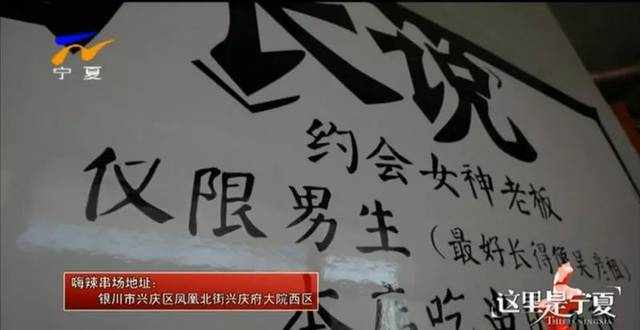 宁夏
说
约会女神老板
仅限男生
(最好长得像吴彦祖)
本店吃串
嗨辣串场地址:
银川市兴庆区凤凰北街兴庆府大院西区
这里是宁夏
THIS IS NINGXIA